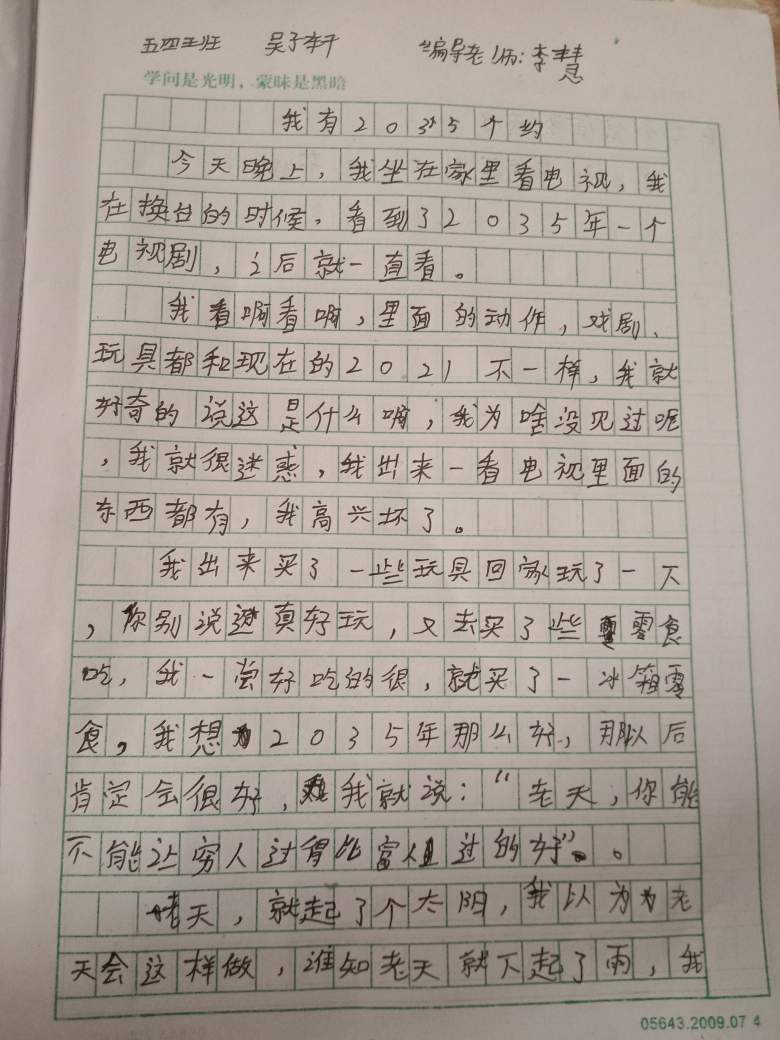 五四班 吴子轩 编导老师:李慧
学问是光明,蒙昧是黑暗
我有2035个约
今天晚上,我坐在家里看电视,我
在换台的时候,看到了2035年一个
电视剧,之后就一直看。
我看啊看啊,里面的动作,戏剧、
玩具都和现在的2021不一样,我就
好奇的说这是什么啊,我为啥没见过呢
,我就很迷惑,我出来一看电视里面的
东西都有,我高兴坏了。
我出来买了一些玩具回家玩了一下
,你别说真好玩,又去买了些零食
吃,我一尝好吃的很,就买了一冰箱零
食,我想2035年那么好,那以后
肯定会很好,我就说:“老天,你能
不能让穷人过得比富人过的好”。
老天,就起了个太阳,我以为老
天会这样做,谁知老天就下起了雨,我
05643.2009.07 4